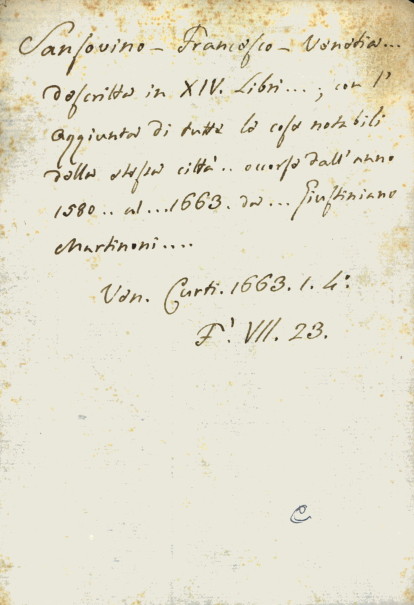 Sansovino - Francesco - Venetia...
descritta in XIV. Libri...; con l'
Aggiunta di tutte le cose notabili
della stessa città.. occorse dall'anno
1580.. al...1663. da... Giustiniano
Martinoni....
Ven. Curti. 1663. 1. 4.º
F'. VII. 23.
C